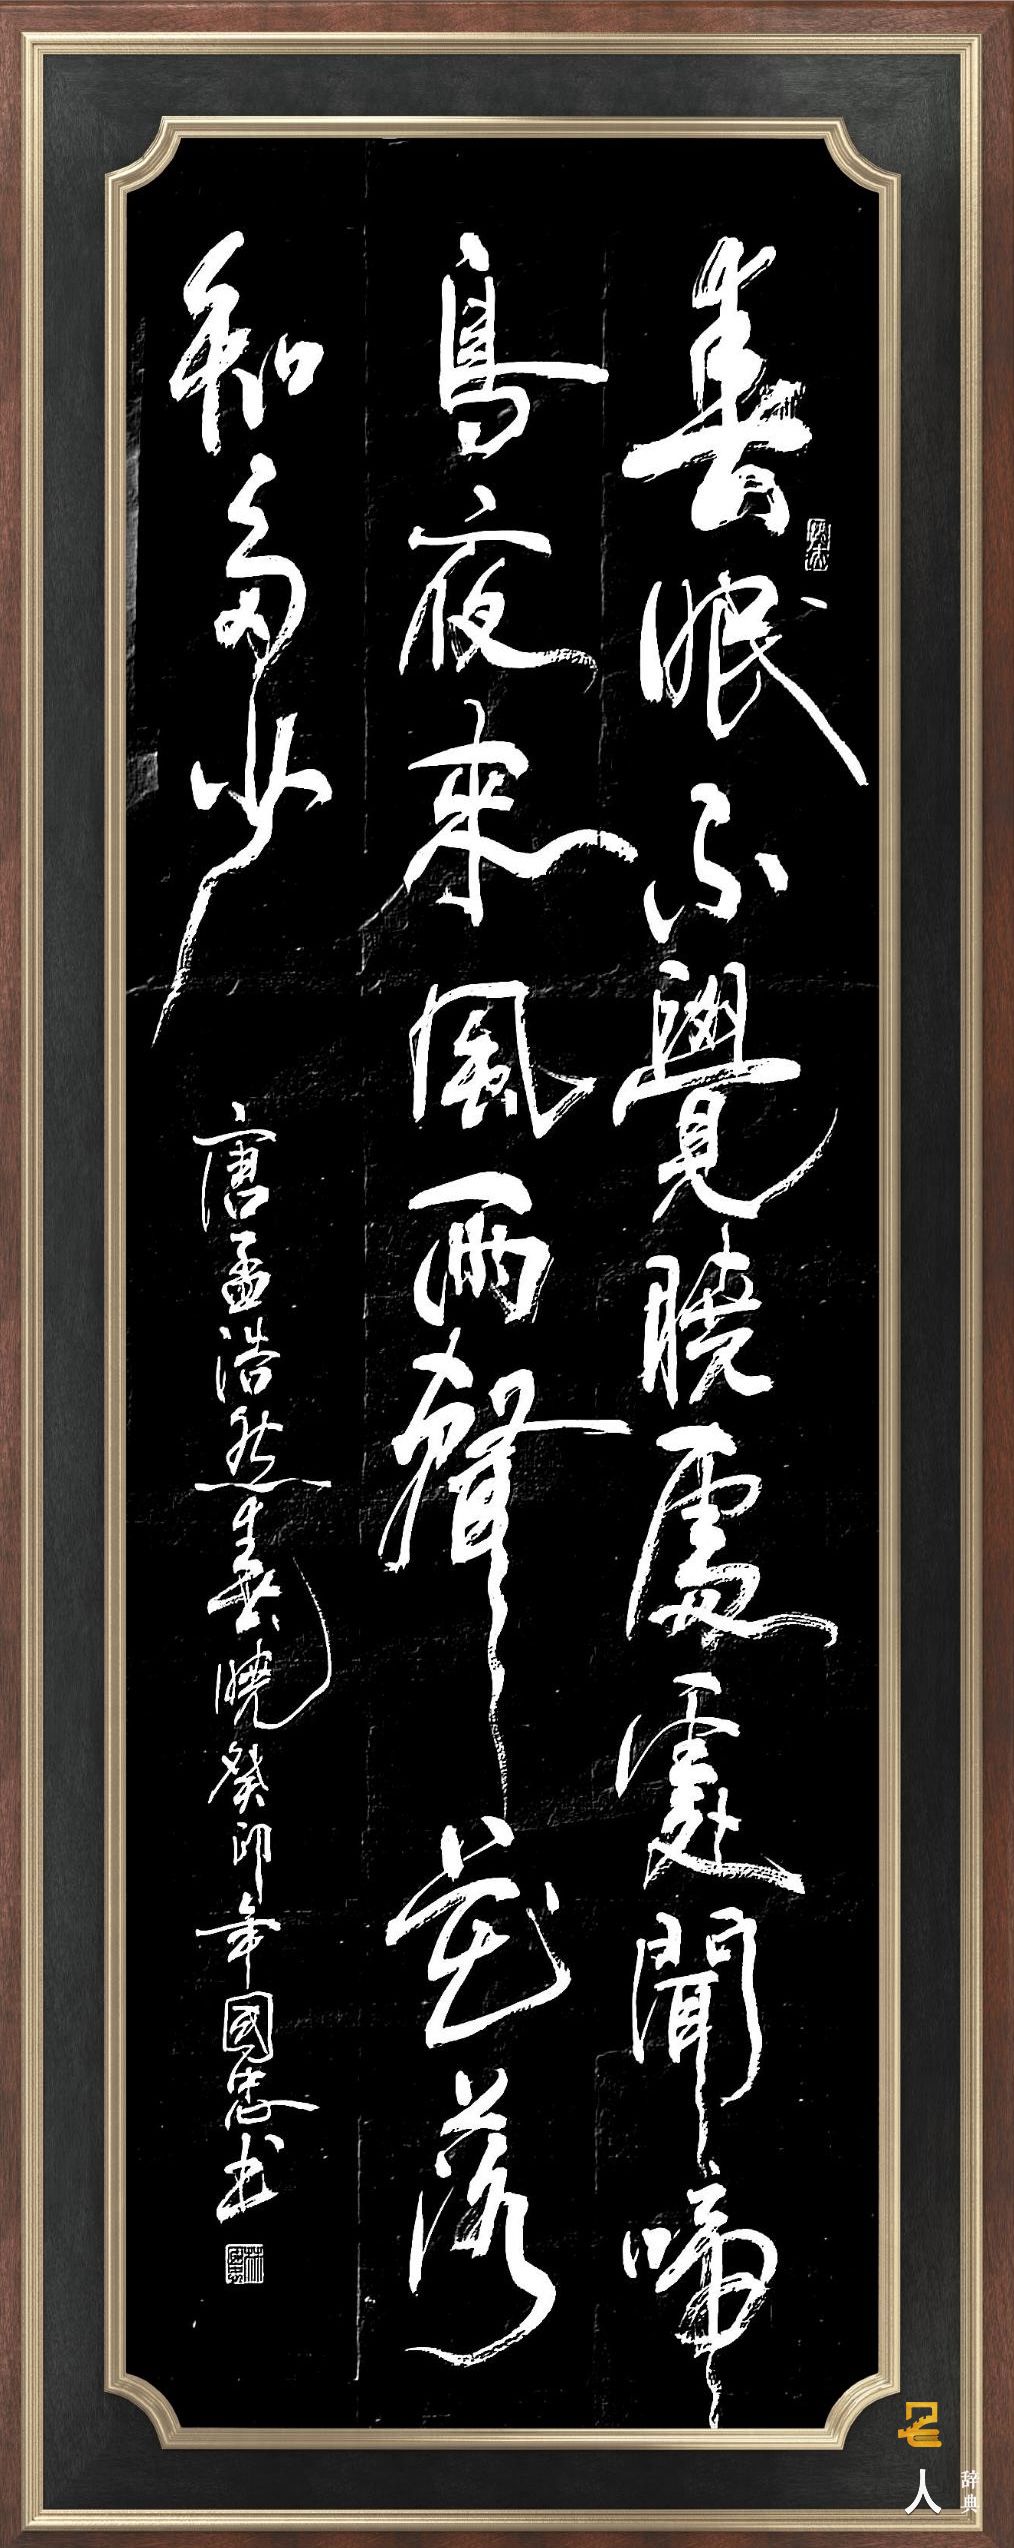 春眠不覺曉處處聞啼
鳥夜來風雨聲花落
知多少
唐孟浩然春曉癸卯年國忠书
人
辞典